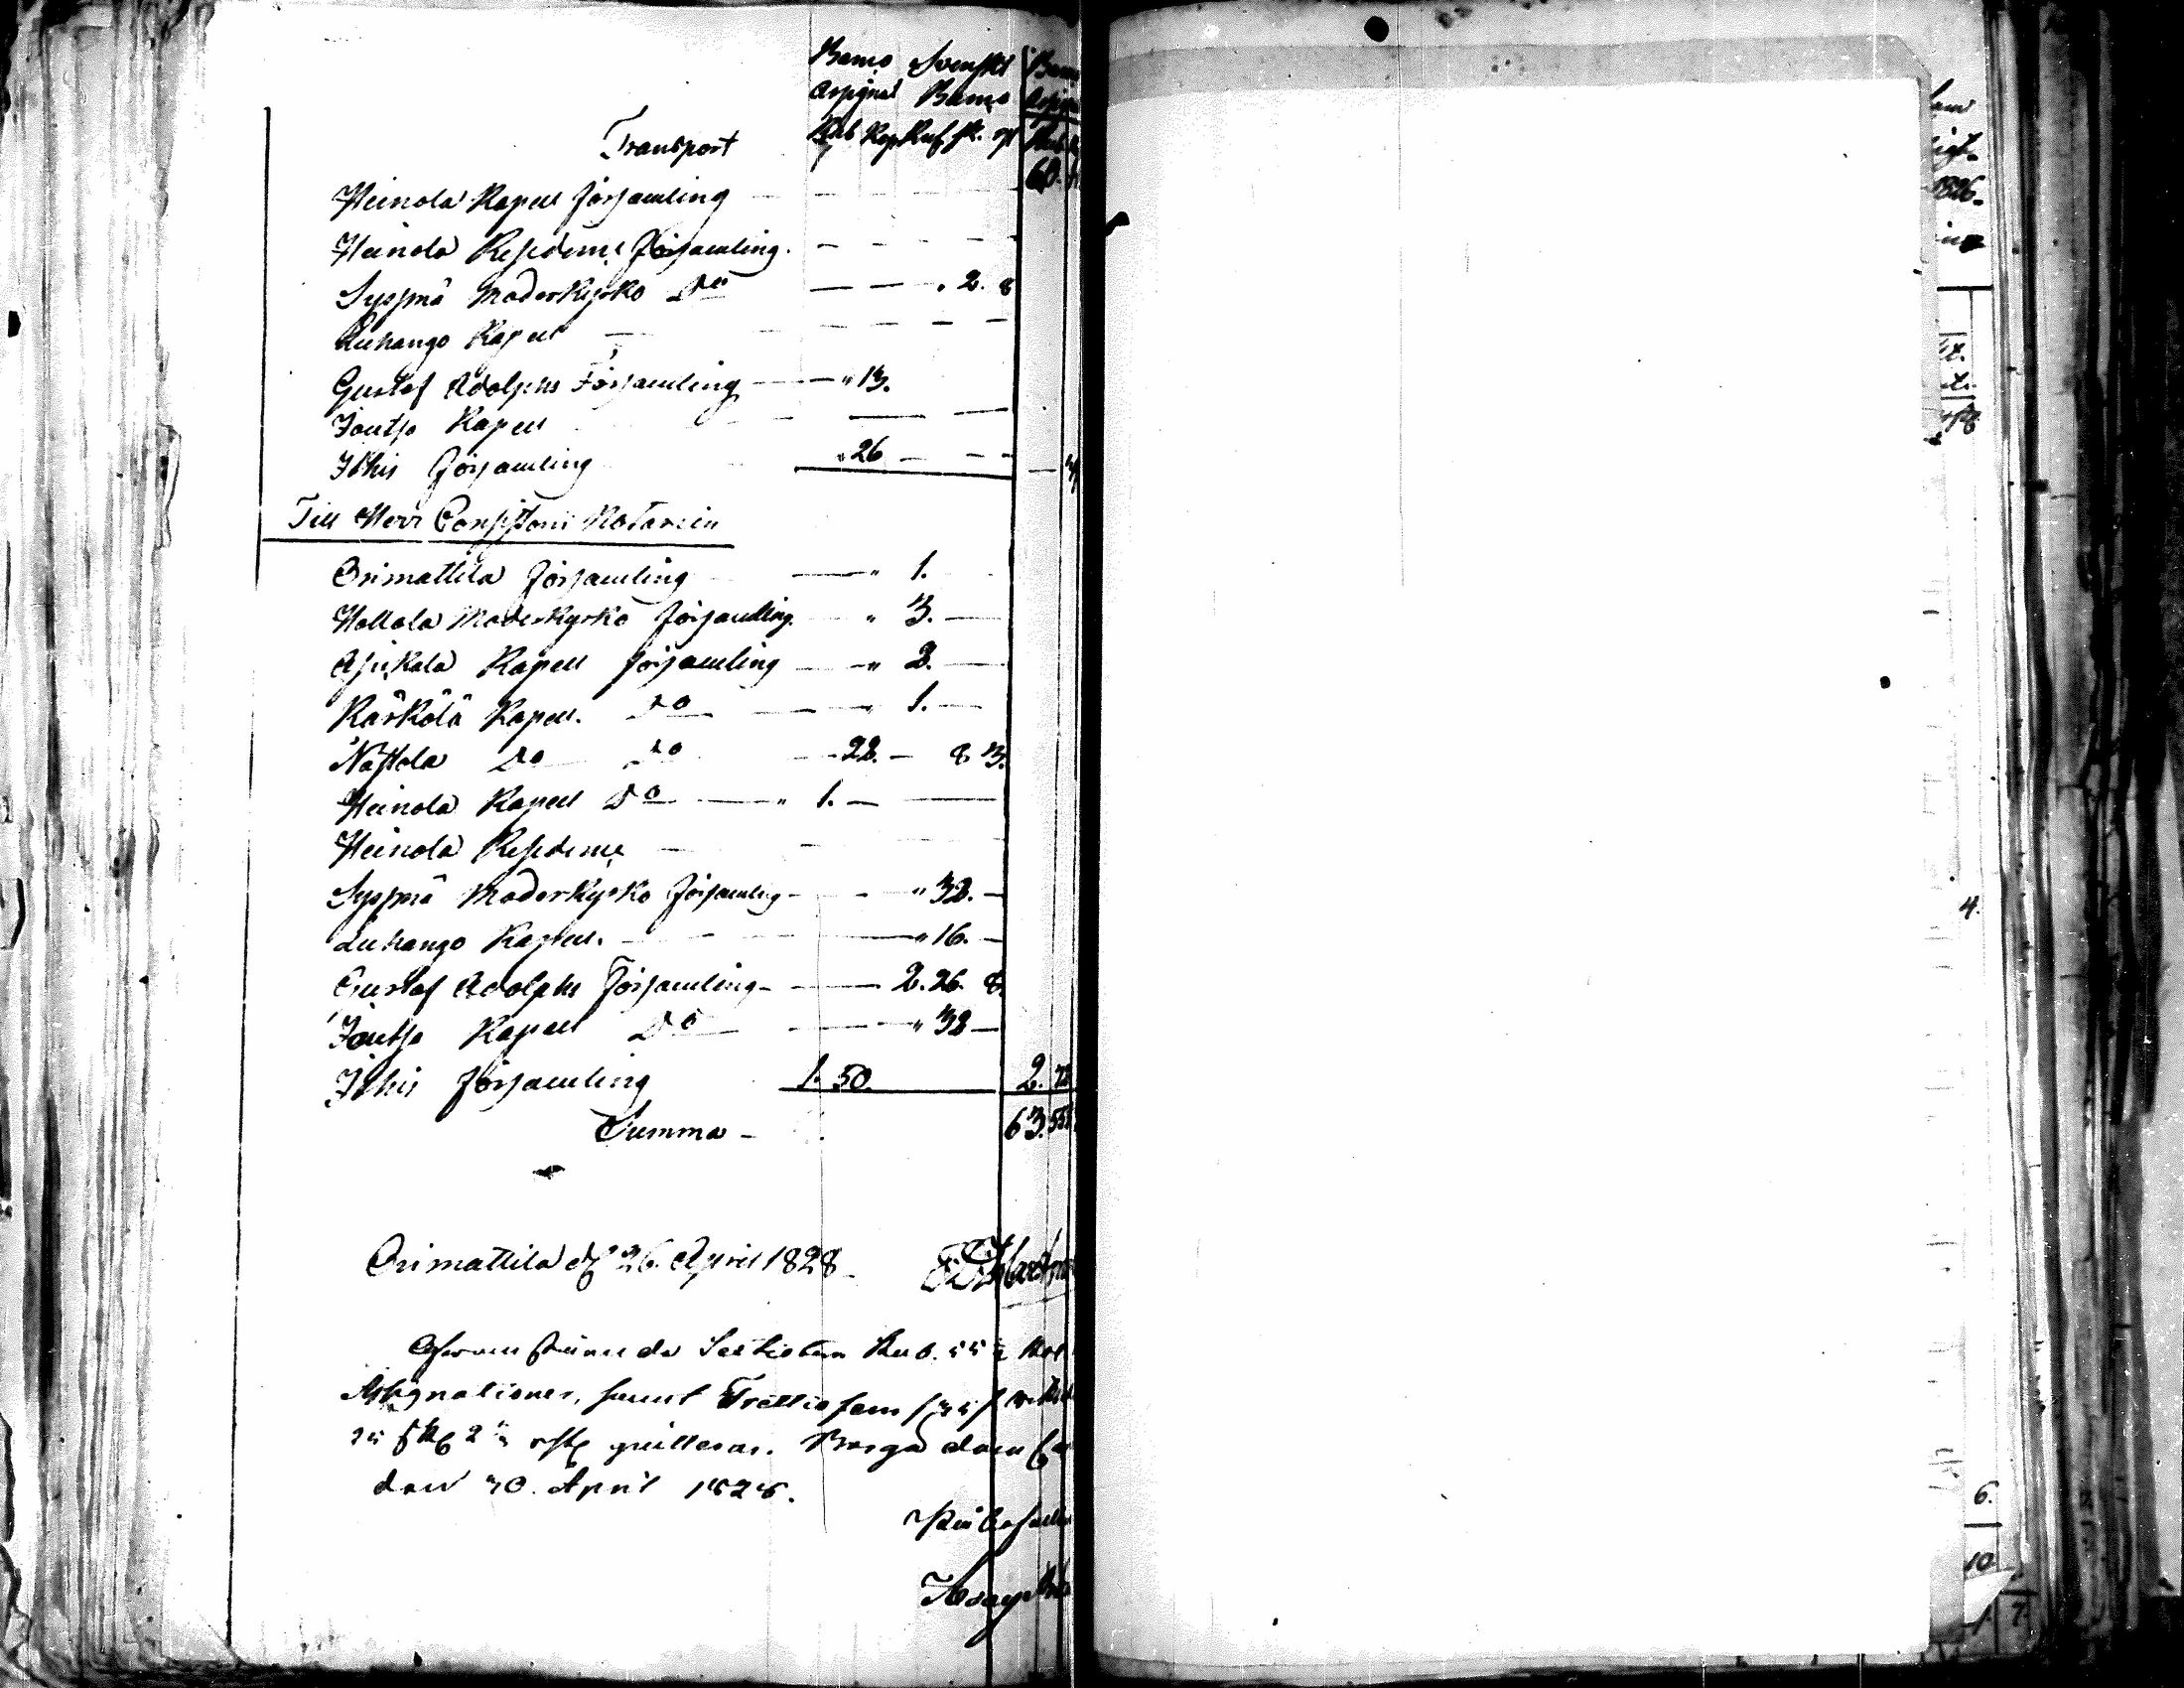 Banco Svenskt
Assignat Banco
Transport Rub Kop Rd sk. rst
60.
Heinola Kapell församling — — — —
Heinola Residence församling. — — — —
Syssmä Moderkyrko Do — — . 2. 8
Luhango Kapell — — — — —
Gustaf Adolphs Församling — " 13.
Joutso Kapell — —
Ithis församling " 26 — — —
Till Herr Consistorii Notarien
Orimattila församling — " 1.
Hollola Moderkyrko församling. " 3. —
Asikkala Kapell församling — " 2. —
Kärkölä Kapell. Do — " 1. —
Nastola Do Do - 22. — 8 3.
Heinola Kapell Do — " 1. — —
Heinola Residence — —
Syssmä Moderkyrko församling - - " 32. —
Luhango Kapell. — — " 16. —
Gustaf Adolphs Församling - — 2. 26. 8.
Joutso Kapell Do — " 32 —
Ithis församling 1. 50. 2.
Summa - 63.
Orimattila d. 26. April 1828.
Sextiotre Rub. 55
Assignationer, samt Trettiofem
qvitteras. Borgå
den 30. April 1828.
4.
6.
10
7.